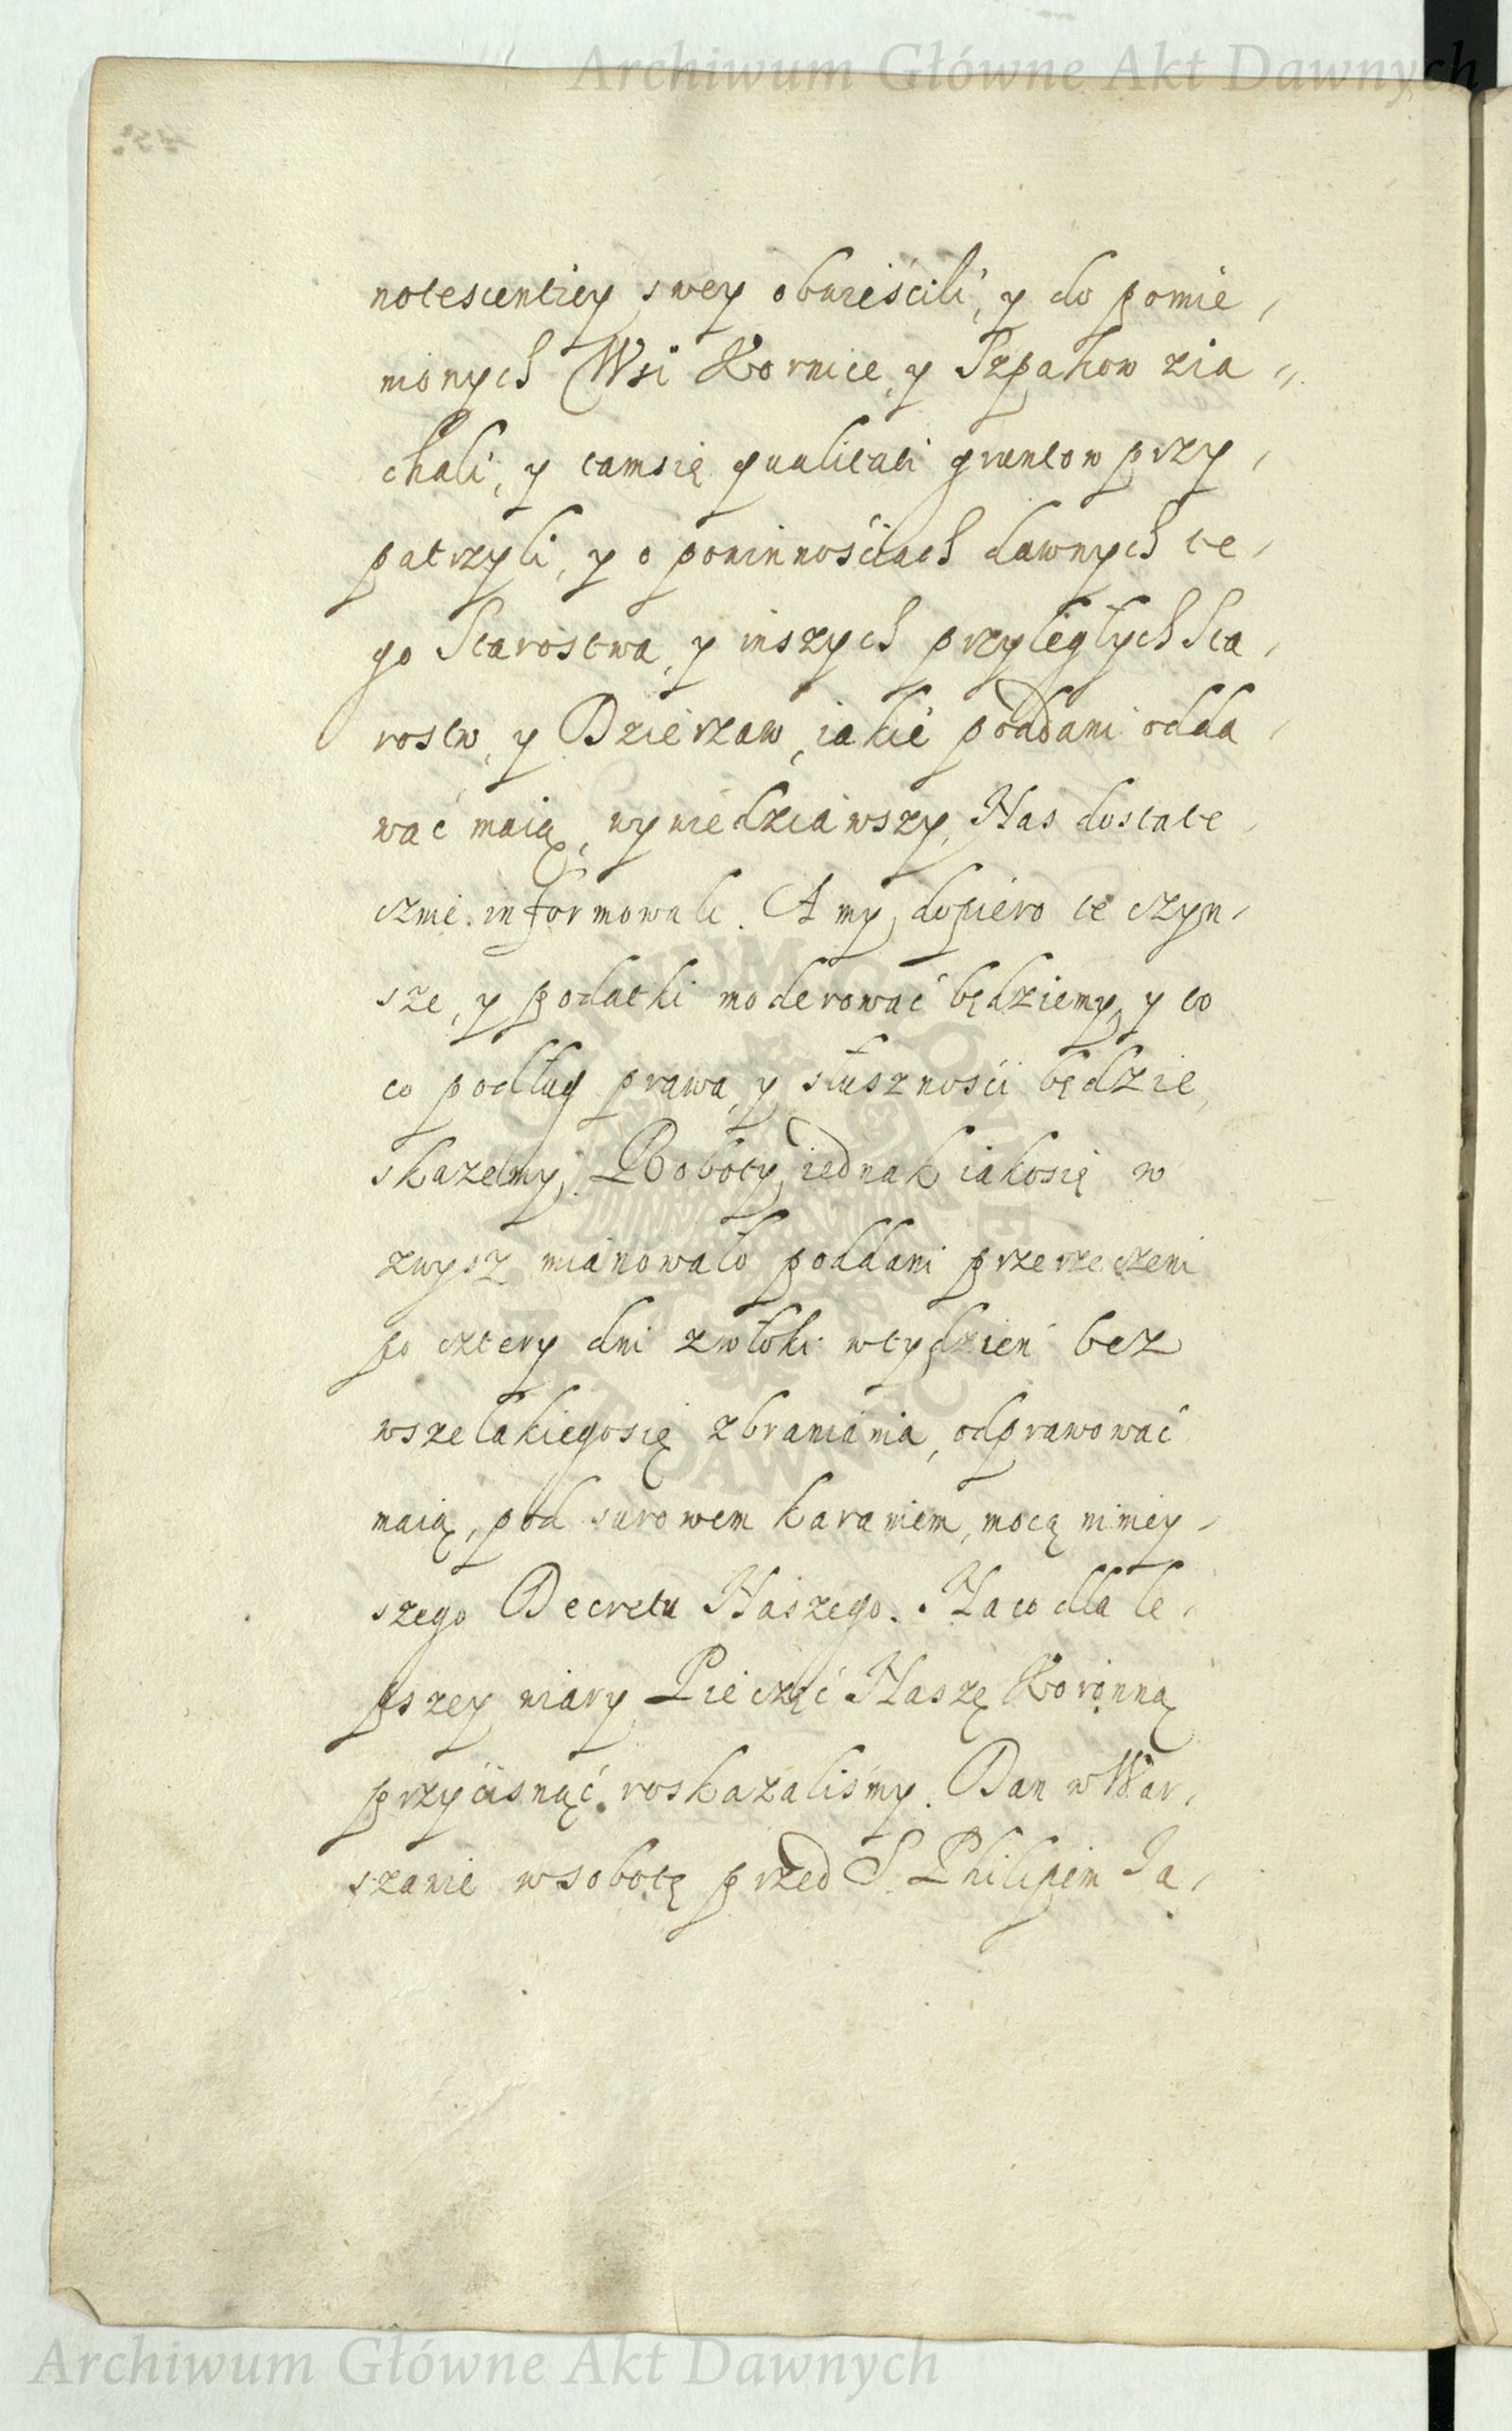 Archiwum Główne Akt Dawnych
notescentiey swey obwieścili, y do pomie,
nionych Wsi Kornice, y Szpakow zia„
chali, y tamsię qualitati gruntow przy,
patrzyli, y o powinnościach dawnych te,
go Starostwa, y inszych przyległych Sta,
rostw, y Dzierzaw, iakie poddani odda,
wać maią, wywiedziawszy, Nas dostate,
cznie informowali. A my dopiero te czyn,
sze, y podatki moderować będziemy, y to
co podług prawa, y słuszności będzie,
skażemy. Roboty iednak iakosię w
zwysz mianowało poddani przerzeczeni
po cztery dni zwłoki wtydzień bez
wszelakiegosię zbraniania, odprawować
maią, pod surowem karaniem, mocą niniey,
szego Decretu Naszego. Naco dla le,
pszey wiary Pieczęć Naszę Koronną
przycisnąć roskazaliśmy. Dan w War,
szawie wsobotę przed S. Philipem Ja,
Archiwum Główne Akt Dawnych